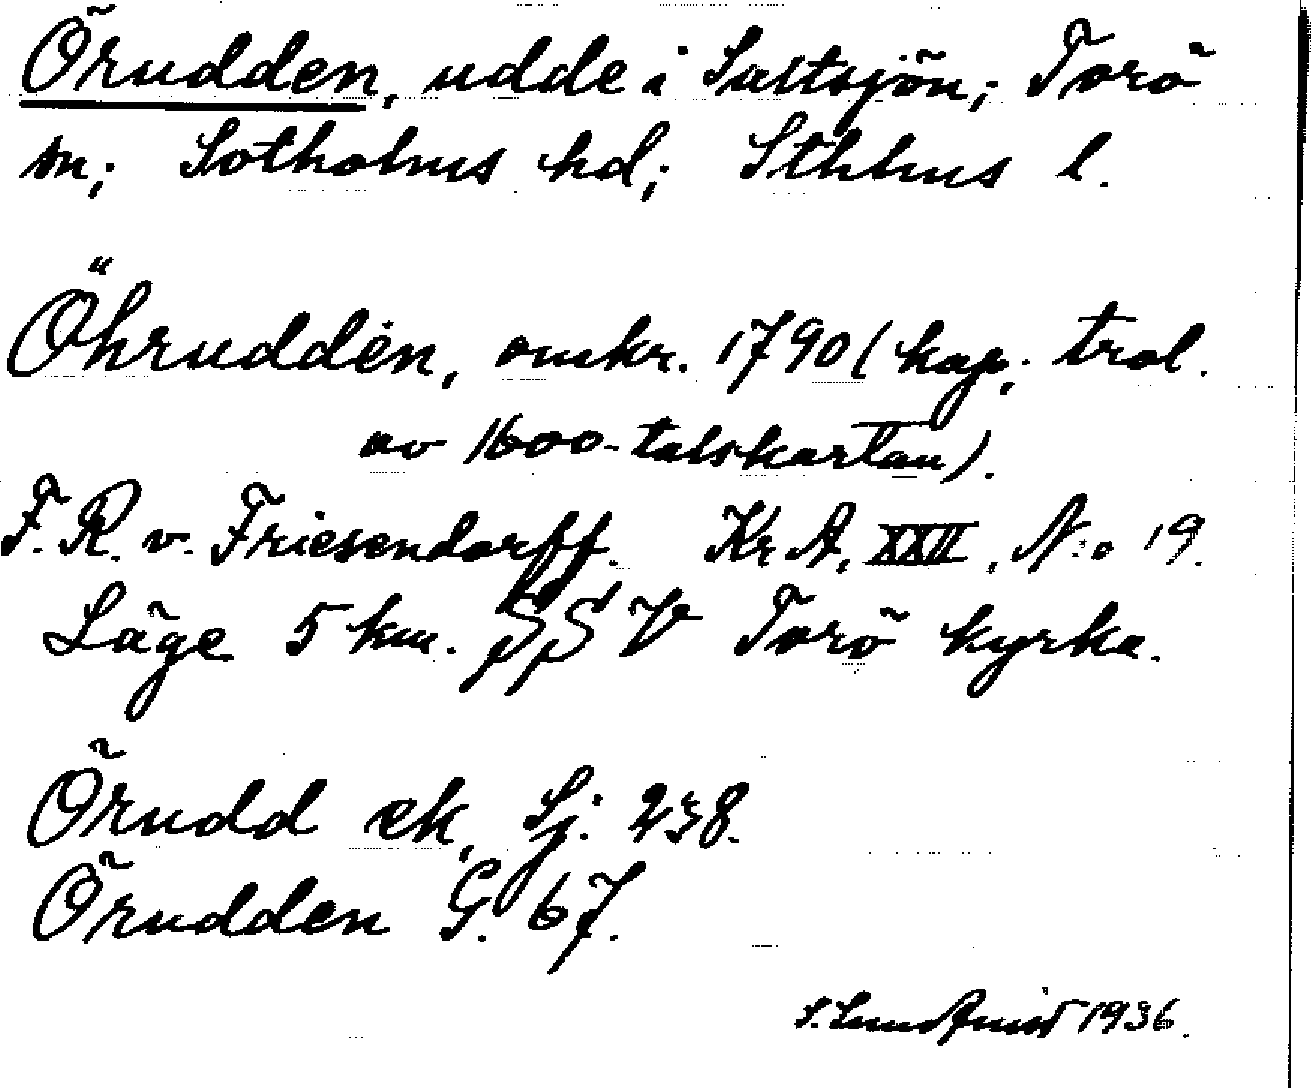 Örudden, udde i Saltsjön; Torö
sn; Sotholms hd; Sthlms l.
Öhrudden, omkr. 1790 (kop. trol.
av 1600-talskartan).
F. R. v. Friesendorff. Kr A, XXII, N:o 19.
Läge 5 km. SSV Torö kyrka.
Örudd ek, Sj. 238.
Örudden G. 67.
S. Lundqvist 1936.